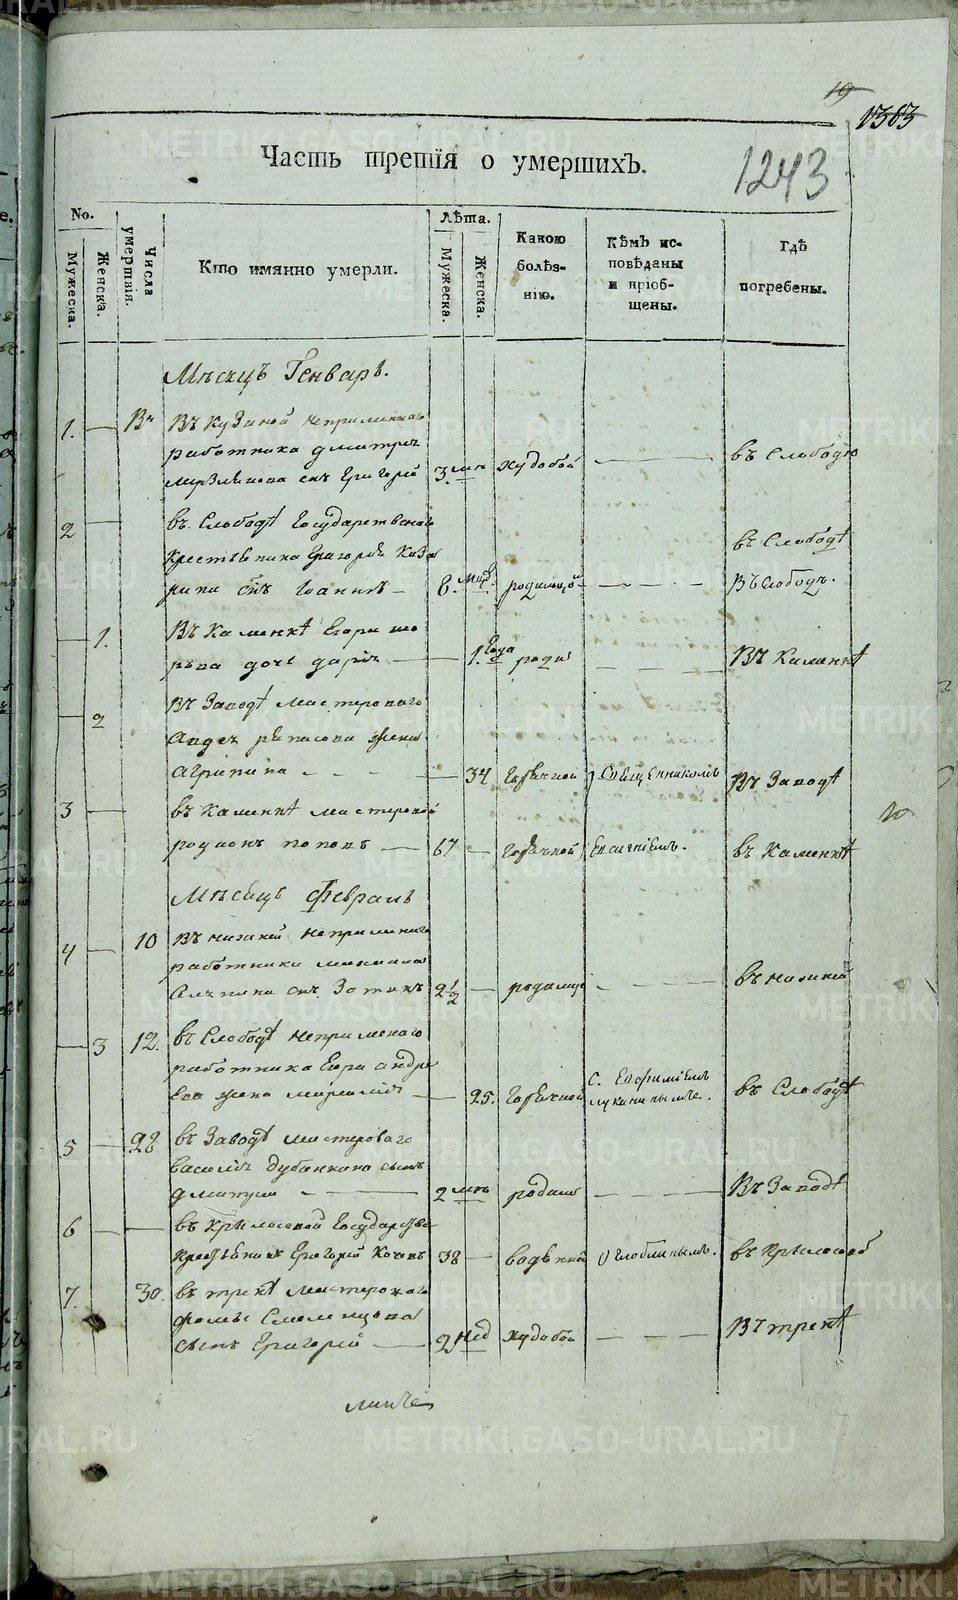 19
1383
1243
Часть третія о умершихъ.
No.
Мужеска.
Женска.
Числа умертвія.
Кто имянно умерли.
Лѣта.
Мужеска.
Женска.
Какою болѣз-
нію.
Кѣмъ ис-
повѣданы
и пріоб-
щены.
Гдѣ
погребены.
Мѣсяцъ Генварь.
1. Въ Кузиной непременнаго
работника Дмитрея
снъ Григорей 3. худобой въ Слободѣ
2 въ Слободѣ Государственнаго
крестьянина Григорья Каза
рина снъ Іоаннъ 6. родимцой въ Слободѣ
Въ Слободѣ.
1. Въ Каменкѣ Егора
дочь Дарія 1. Года роди Въ Каменкѣ
2 Въ Заводѣ мастероваго
Авдея жена
Агрипина 34 Горячкой Священникомъ Въ Заводѣ
3 въ Каменкѣ мастеровой
Родионъ Поповъ 67 Горячкой въ Каменкѣ
Мѣсяцъ Февраль
4 10 Въ Нижней непременнаго
работника
снъ Зотикъ 2 1/2 родимце въ Нижней
3 12. въ Слободѣ непременнаго
работника Егора Андре
ева жена 25. Горячкой С. Евфиміемъ
Лукинымъ. въ Слободѣ
5 28 въ Заводѣ мастероваго
Василія сынъ
Дмитрий 2 родим Въ Заводѣ
6 въ Крылосовой Государстве
крестьянинъ Григорей 38 водяной Оглоблинымъ. въ Крылосовой
7. 30. въ трекѣ мастероваго
Фомы
сынъ Григорей 2 нед худобой Въ трекѣ
METRIKI.GASO-URAL.RU